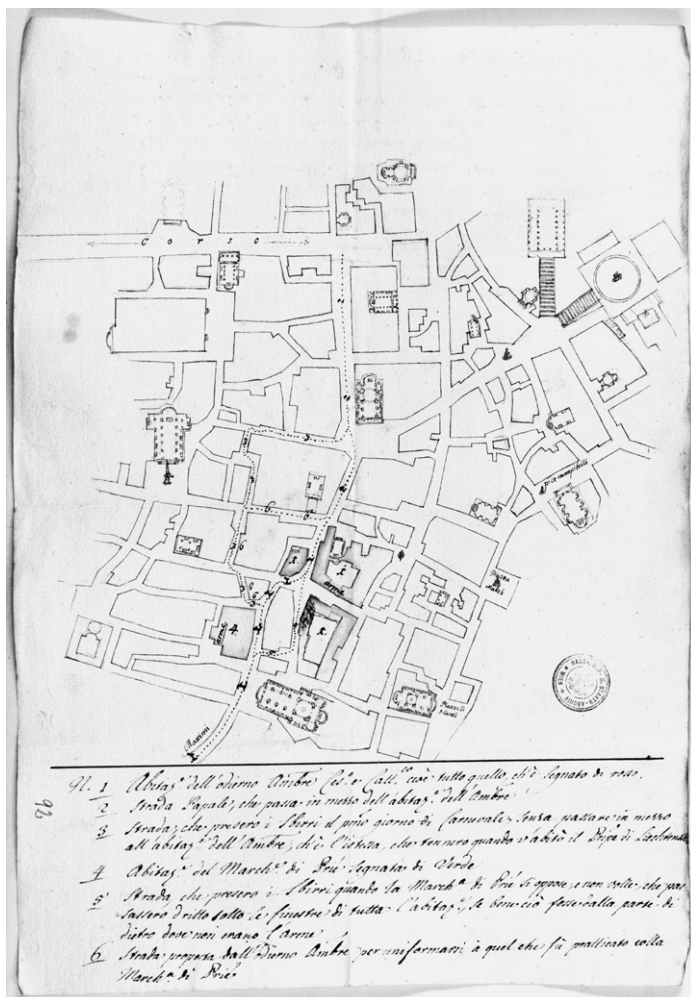 Corso
P.za campitelli
Piazza
Mattei
Arme
Arme
Piazza di
Massimi
N. 1 Abitaz.e dell'odierno Ambre Ces.o e Catt.co cioè tutto quello, ch'è segnato di rosso.
2 Strada Papale, che passa in mezzo dell'abitaz.e dell'Ambre
3 Strada, che presero i Sbirri il pmo giorno di Carnevale, senza passare in mezzo
all'abitaz.e dell'Ambre, ch'è l'istessa, che tennero quando v'abitò il Pripe di
4 Abitaz.e del March.e di Prié segnata di Verde
5 Strada, che presero i Sbirri quando la March.a di Prié si oppose, e non volle, che pas
sassero dritto sotto le finestre di tutta l'abitaz.e, se bene ciò fosse dalla parte di
dietro dove non erano l'Arme
6 Strada proposta dall'odierno Ambre per uniformarsi à quel che fù pratticato colla
March.a di Prié
92